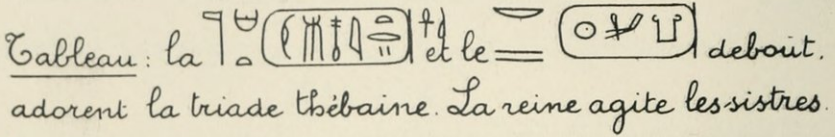 Tableau : la et le debout,
adorent la triade thébaine. La reine agite les sistres.